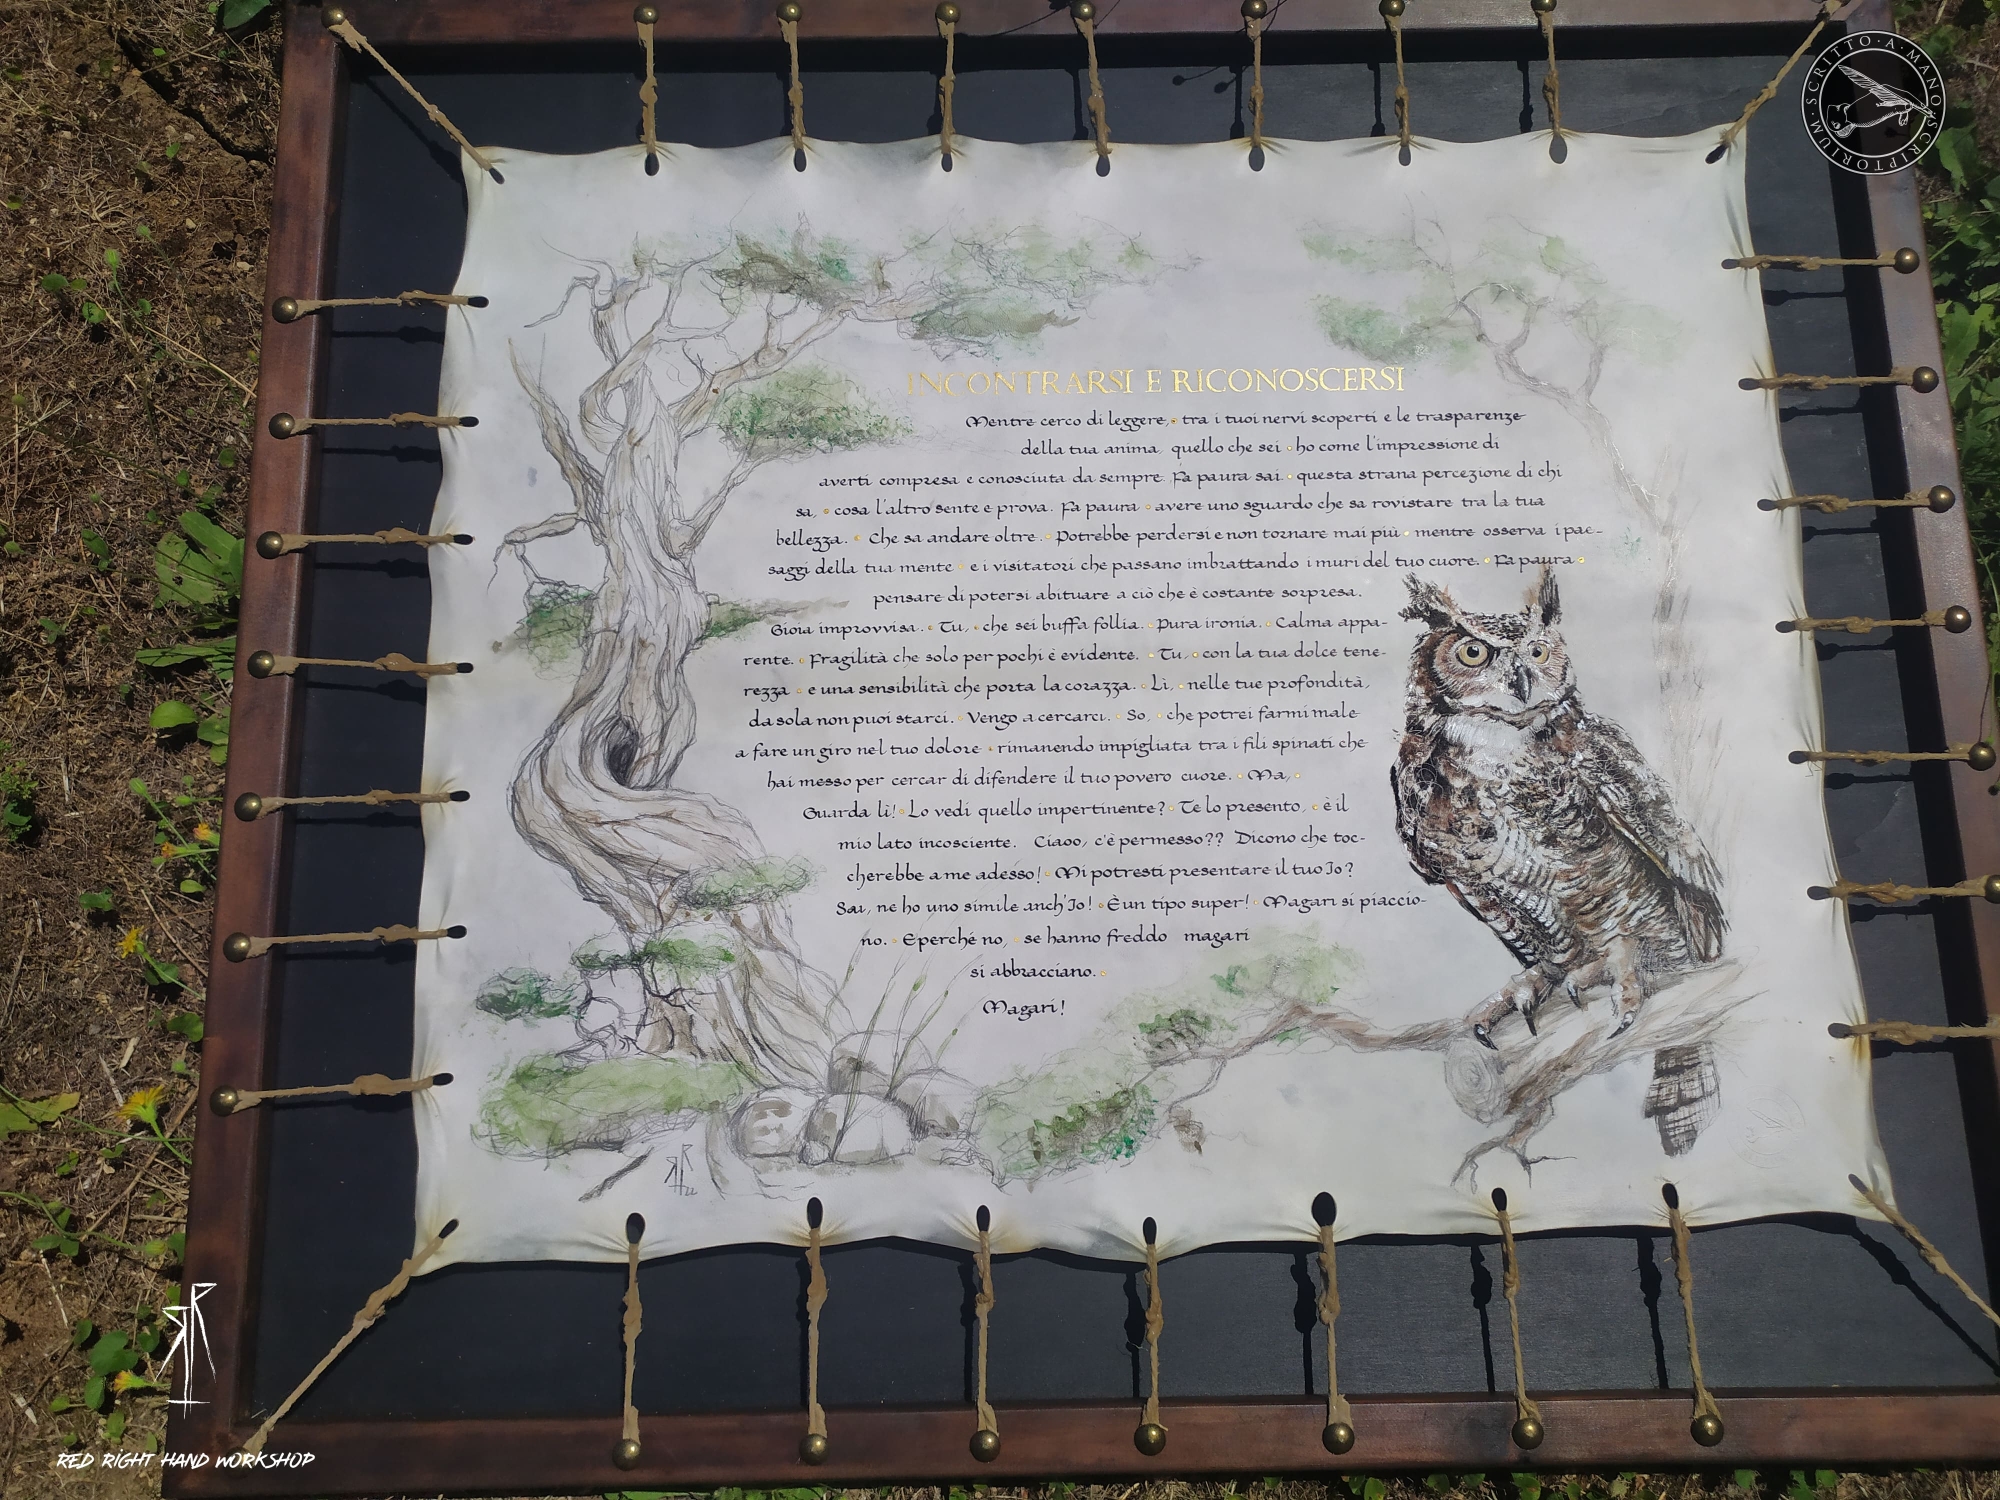 SCRITTO · A · MANO · SCRIPTORIUM ·
INCONTRARSI E RICONOSCERSI
Mentre cerco di leggere, tra i tuoi nervi scoperti e le trasparenze
della tua anima, quello che sei ho come l'impressione di
averti compresa e conosciuta da sempre. Fa paura sai questa strana percezione di chi
sa, cosa l'altro sente e prova. Fa paura avere uno sguardo che sa rovistare tra la tua
bellezza. Che sa andare oltre. Potrebbe perdersi e non tornare mai più mentre osserva i pae-
saggi della tua mente e i visitatori che passano imbrattando i muri del tuo cuore. Fa paura
pensare di potersi abituare a ciò che è costante sorpresa.
Gioia improvvisa. Tu, che sei buffa follia. Pura ironia. Calma appa-
rente. Fragilità che solo per pochi è evidente. Tu, con la tua dolce tene-
rezza e una sensibilità che porta la corazza. Lì, nelle tue profondità,
da sola non puoi starci. Vengo a cercarci. So, che potrei farmi male
a fare un giro nel tuo dolore rimanendo impigliata tra i fili spinati che
hai messo per cercar di difendere il tuo povero cuore. Ma,
Guarda lì! Lo vedi quello impertinente? Te lo presento, è il
mio lato incosciente. Ciaoo, c'è permesso?? Dicono che toc-
cherebbe a me adesso! Mi potresti presentare il tuo Io?
Sai, ne ho uno simile anch'Io! È un tipo super! Magari si piaccio-
no. E perché no, se hanno freddo magari
si abbracciano.
Magari!
RED RIGHT HAND WORKSHOP